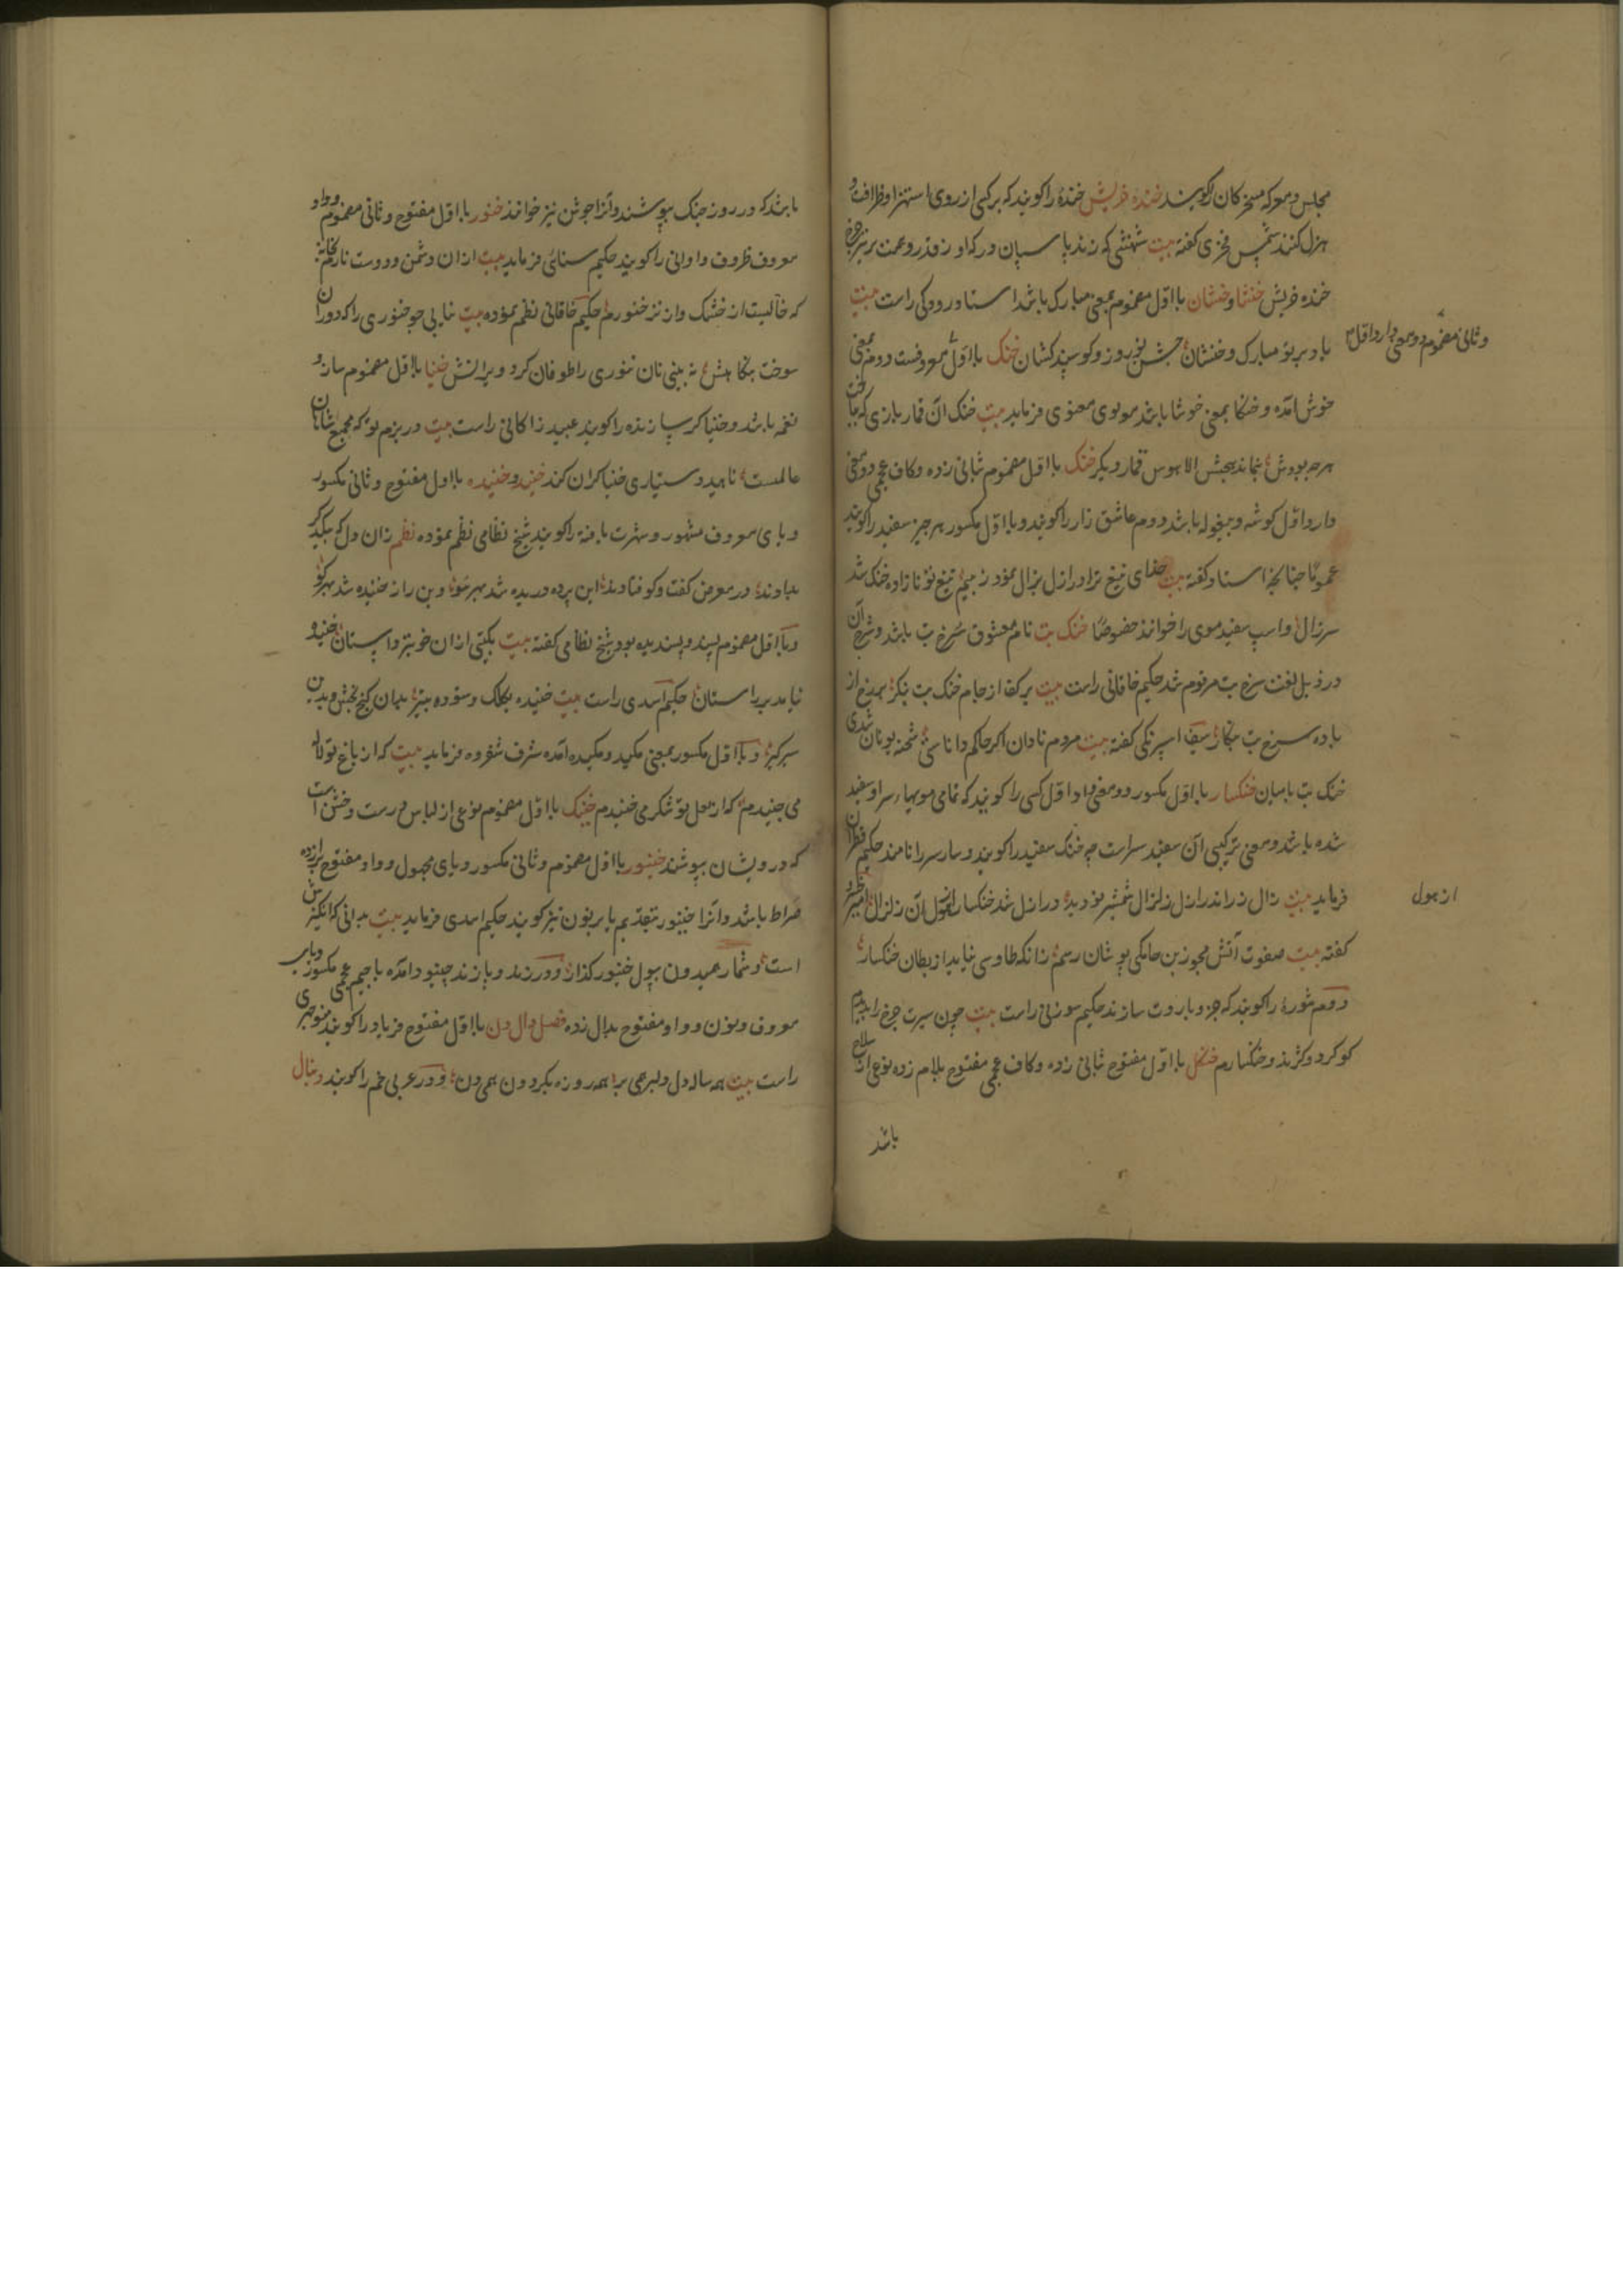 مجلس و معرکه مسخرکان را کویند خنده خریش خندهٔ را کویند که بر کسی از روی استهزا و ظرافت و
هزل کنند شمس فخری کفته بیت شهنشهی که زند پاسبان درکه او ز قدر و عمت بر تیر چرخ
خنده خریش خنشا و خنشان با اول مضموم بمعنی مبارک باشد استاد رودکی راست بیت
باد بر تو مبارک و خنشان جشن نوروز و کوسپند کشان خنک با اول معروفست دوم بمعنی
و ثانی مضموم دو معنی دارد اول
خوش آمده و خنکا بمعنی خوشا باشد مولوی معنوی فرماید بیت خنک آن قماربازی که بباخت
هرچه بودش بنماند هیچش الا هوس قمار دیکر خنک با اول مضموم بثانی زده و کاف عجمی دو معنی
دارد اول کوشه و بیغوله باشد دوم عاشق زار را کویند و با اول مکسور هر چیز سفید را کویند
عموما چنانچه استاد کفته بیت ای تیغ ترا در ازل بزال نمود ز بیم تیغ تو نازاده خنک شد
سر زال و اسپ سفید موی را خوانند خصوصا خنک بت نام معشوق سرخ بت باشد و شرح آن
در ذیل لغت سرخ بت مرقوم شد حکیم خاقانی راست بیت بر کف از جام خنک بت بنکر از
باده سرخ بت بنکار سیف اسپرنکی کفته بیت مردم نادان اکر حاکم داناستی شحنه یونان شدی
خنک بت بامیان خنکسار با اول مکسور دو معنی دارد اول کسی را کویند که تمامی مویهاء سر او سفید
شده باشد و معنی ترکیبی آن سفید سر است چه خنک سفید را کویند و سار سر را نامند حکیم قطران
فرماید بیت زال زر اندر ازل زلزال شمشیر تو دید در ازل شد خنکسار از هول آن زلزال
از هول
کفته بیت صفوت آتش مجوز بن جامکی پوشان رسم زانکه طاوسی نیاید از بطان خنکسار
دوم شوره را کویند که جزو باروت سازند حکیم سوزنی راست بیت چون سیرت چرخ را بدیدم
کوکرد و کژند و خنکسارم خنکل با اول مفتوح بثانی زده و کاف عجمی مفتوح بلام زده نوعی از سلاح
باشد
باشد که در روز جنک بپوشند و آنرا جوشن نیز خوانند خنور با اول مفتوح و ثانی مضموم و واو
معروف ظروف و اوانی را کویند حکیم سنائی فرماید بیت از آن دشمن و دوست نار بخانه
که خالیست از خشک و از تر خنورم حکیم خاقانی نظم نموده بیت نیابی جو خنوری را که دوران
سوخت بنکاهش نه بینی نان تنوری را که طوفان کرد ویرانش خنیا با اول مضموم ساز و
نغمه باشد و خنیاکر سازنده را کویند عبید زاکانی راست بیت در بزم تو که مجمع شاهان
عالمست ناهید دستیاری خنیاکران کند خنید و خنیده با اول مفتوح و ثانی مکسور
و یای معروف مشهور و شهرت یافته را کویند شیخ نظامی نظم نموده نظم زان دل که بیکدکر
بدادند در معرض کفت و کو فتادند این پرده دریده شد بهر سو وین راز خنیده شد بهر کو
و با اول مضموم پسند و پسندیده بود شیخ نظامی کفته بیت یکی از آن خوبتر داستان خنیده
نیامد بر راستان حکیم اسدی راست بیت خنیده بکلک و ستوده بتیر بدان کنج بخش و بدین
سرکیر و با اول مکسور بمعنی مکید و مکیده آمده شرف شفروه فرماید بیت که از باغ تو لاله
می چنیدم که از لعل تو شکر می خنیدم خنیک با اول مضموم نوعی از لباس درشت و خشن است
که درویشان پوشند خنیور با اول مضموم و ثانی مکسور و یای مجهول و واو مفتوح برازده
صراط باشد و آنرا خینور بتقدیم یا بر نون نیز کویند حکیم اسدی فرماید بیت بدانی که انکیزش
است و شمار همیدون بپول خنیور کذار و در زند و پازند چینود آمده با جیم عجمی مکسور و یای
معروف و نون و واو مفتوح بدال زده فصل دال دن با اول مفتوح فریاد را کویند منوچهری
راست بیت همه ساله دل و لبرهمی بر همه روزه بکردون همی دن و در عربی خم را کویند دنبال